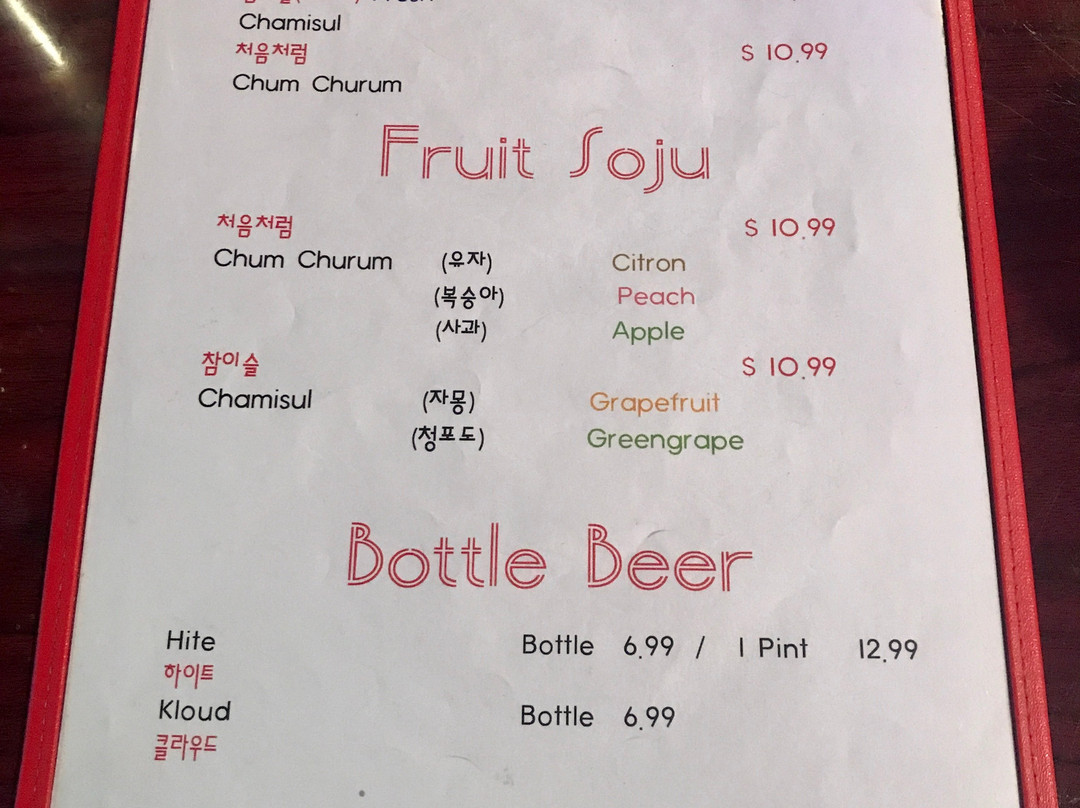 Chamisul
처음처럼 $ 10.99
Chum Churum
Fruit Soju
처음처럼 $ 10.99
Chum Churum (유자) Citron
(복숭아) Peach
(사과) Apple
참이슬 $ 10.99
Chamisul (자몽) Grapefruit
(청포도) Greengrape
Bottle Beer
Hite Bottle 6.99 / 1 Pint 12.99
하이트
Kloud Bottle 6.99
클라우드